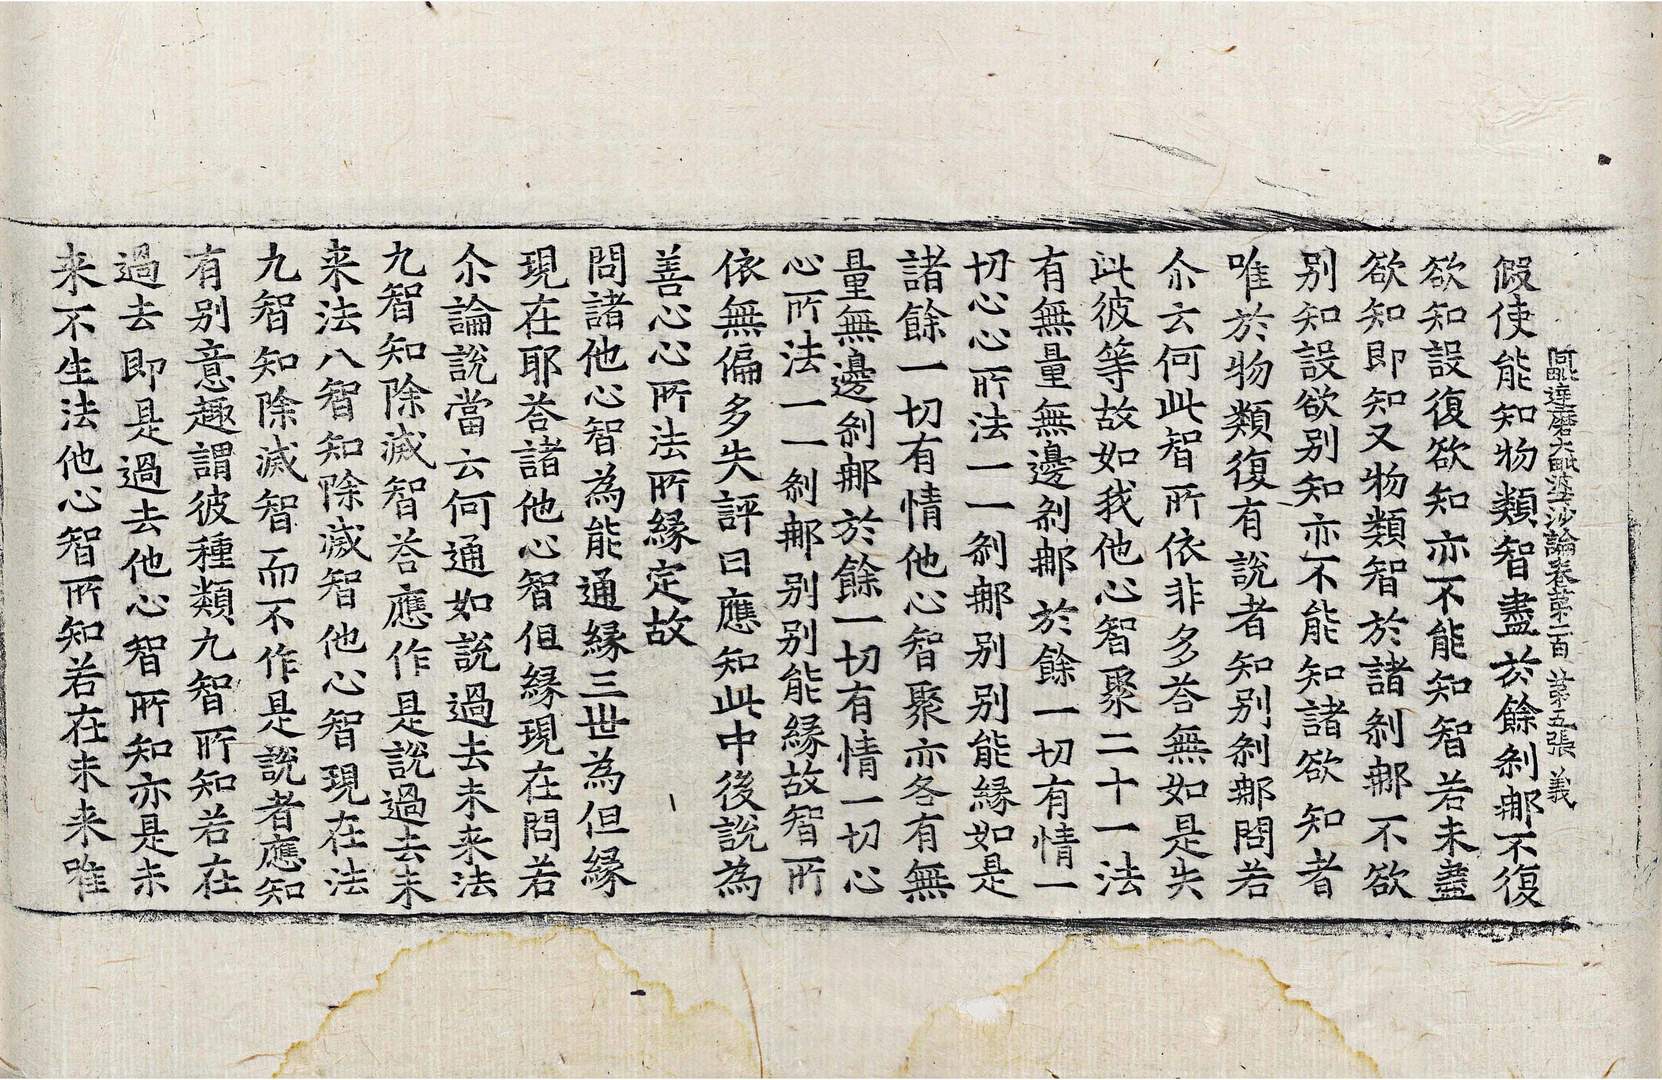 阿毗達磨大毗婆沙論卷第一百　第五張　義
假使能知物類智盡於餘刹那不復
欲知設復欲知亦不能知智若未盡
欲知即知又物類智於諸刹那不欲
別知設欲別知亦不能知諸欲知者
唯於物類復有說者知別刹那問若
尒云何此智所依非多荅無如是失
此彼等故如我他心智聚二十一法
有無量無邊刹那於餘一切有情一
切心心所法一一刹那別別能緣如是
諸餘一切有情他心智聚亦各有無
量無邊刹那於餘一切有情一切心
心所法一一刹那別別能緣故智所
依無偏多失評曰應知此中後說為
善心心所法所緣定故
問諸他心智為能通緣三世為但緣
現在耶荅諸他心智但緣現在問若
尒論說當云何通如說過去未來法
九智知除滅智荅應作是說過去未
来法八智知除滅智他心智現在法
九智知除滅智而不作是說者應知
有別意趣謂彼種類九智所知若在
過去即是過去他心智所知亦是未
来不生法他心智所知若在未来唯